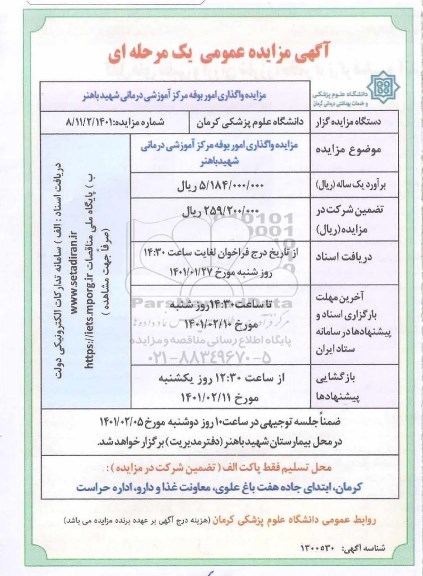 آگهی مزایده عمومی یک مرحله ای
دانشگاه علوم پزشکی
و خدمات بهداشتی درمانی کرمان
مزایده واگذاری امور بوفه مرکز آموزشی درمانی شهید باهنر
دستگاه مزایده گزار
دانشگاه علوم پزشکی کرمان
شماره مزایده: ۸/۱۱/۲/۱۴۰۱
موضوع مزایده
مزایده واگذاری امور بوفه مرکز آموزشی درمانی
شهید باهنر
برآورد یک ساله (ریال)
۵/۱۸۴/۰۰۰/۰۰۰ ریال
تضمین شرکت در
مزایده (ریال)
۲۵۹/۲۰۰/۰۰۰ ریال
دریافت اسناد
از تاریخ درج فراخوان لغایت ساعت ۱۴:۳۰
روز شنبه مورخ ۱۴۰۱/۰۱/۲۷
آخرین مهلت
بارگزاری اسناد و
پیشنهادها در سامانه
ستاد ایران
تا ساعت ۱۴:۳۰ روز شنبه
مورخ ۱۴۰۱/۰۲/۱۰
بازگشایی
پیشنهادها
از ساعت ۱۲:۳۰ روز یکشنبه
مورخ ۱۴۰۱/۰۲/۱۱
دریافت اسناد : الف ) سامانه تدارکات الکترونیکی دولت
www.setadiran.ir
ب ) پایگاه ملی مناقصات https://iets.mporg.ir
(صرفاً جهت مشاهده )
پایگاه اطلاع رسانی مناقصه و مزایده
۰۲۱-۸۸۳۴۹۶۷۰-۵
ضمناً جلسه توجیهی در ساعت ۱۰ روز دوشنبه مورخ ۱۴۰۱/۰۲/۰۵
در محل بیمارستان شهید باهنر (دفتر مدیریت) برگزار خواهد شد.
محل تسلیم فقط پاکت الف ( تضمین شرکت در مزایده ) :
کرمان، ابتدای جاده هفت باغ علوی، معاونت غذا و دارو، اداره حراست
روابط عمومی دانشگاه علوم پزشکی کرمان (هزینه درج آگهی بر عهده برنده مزایده می باشد)
شناسه آگهی: ۱۳۰۰۵۳۰